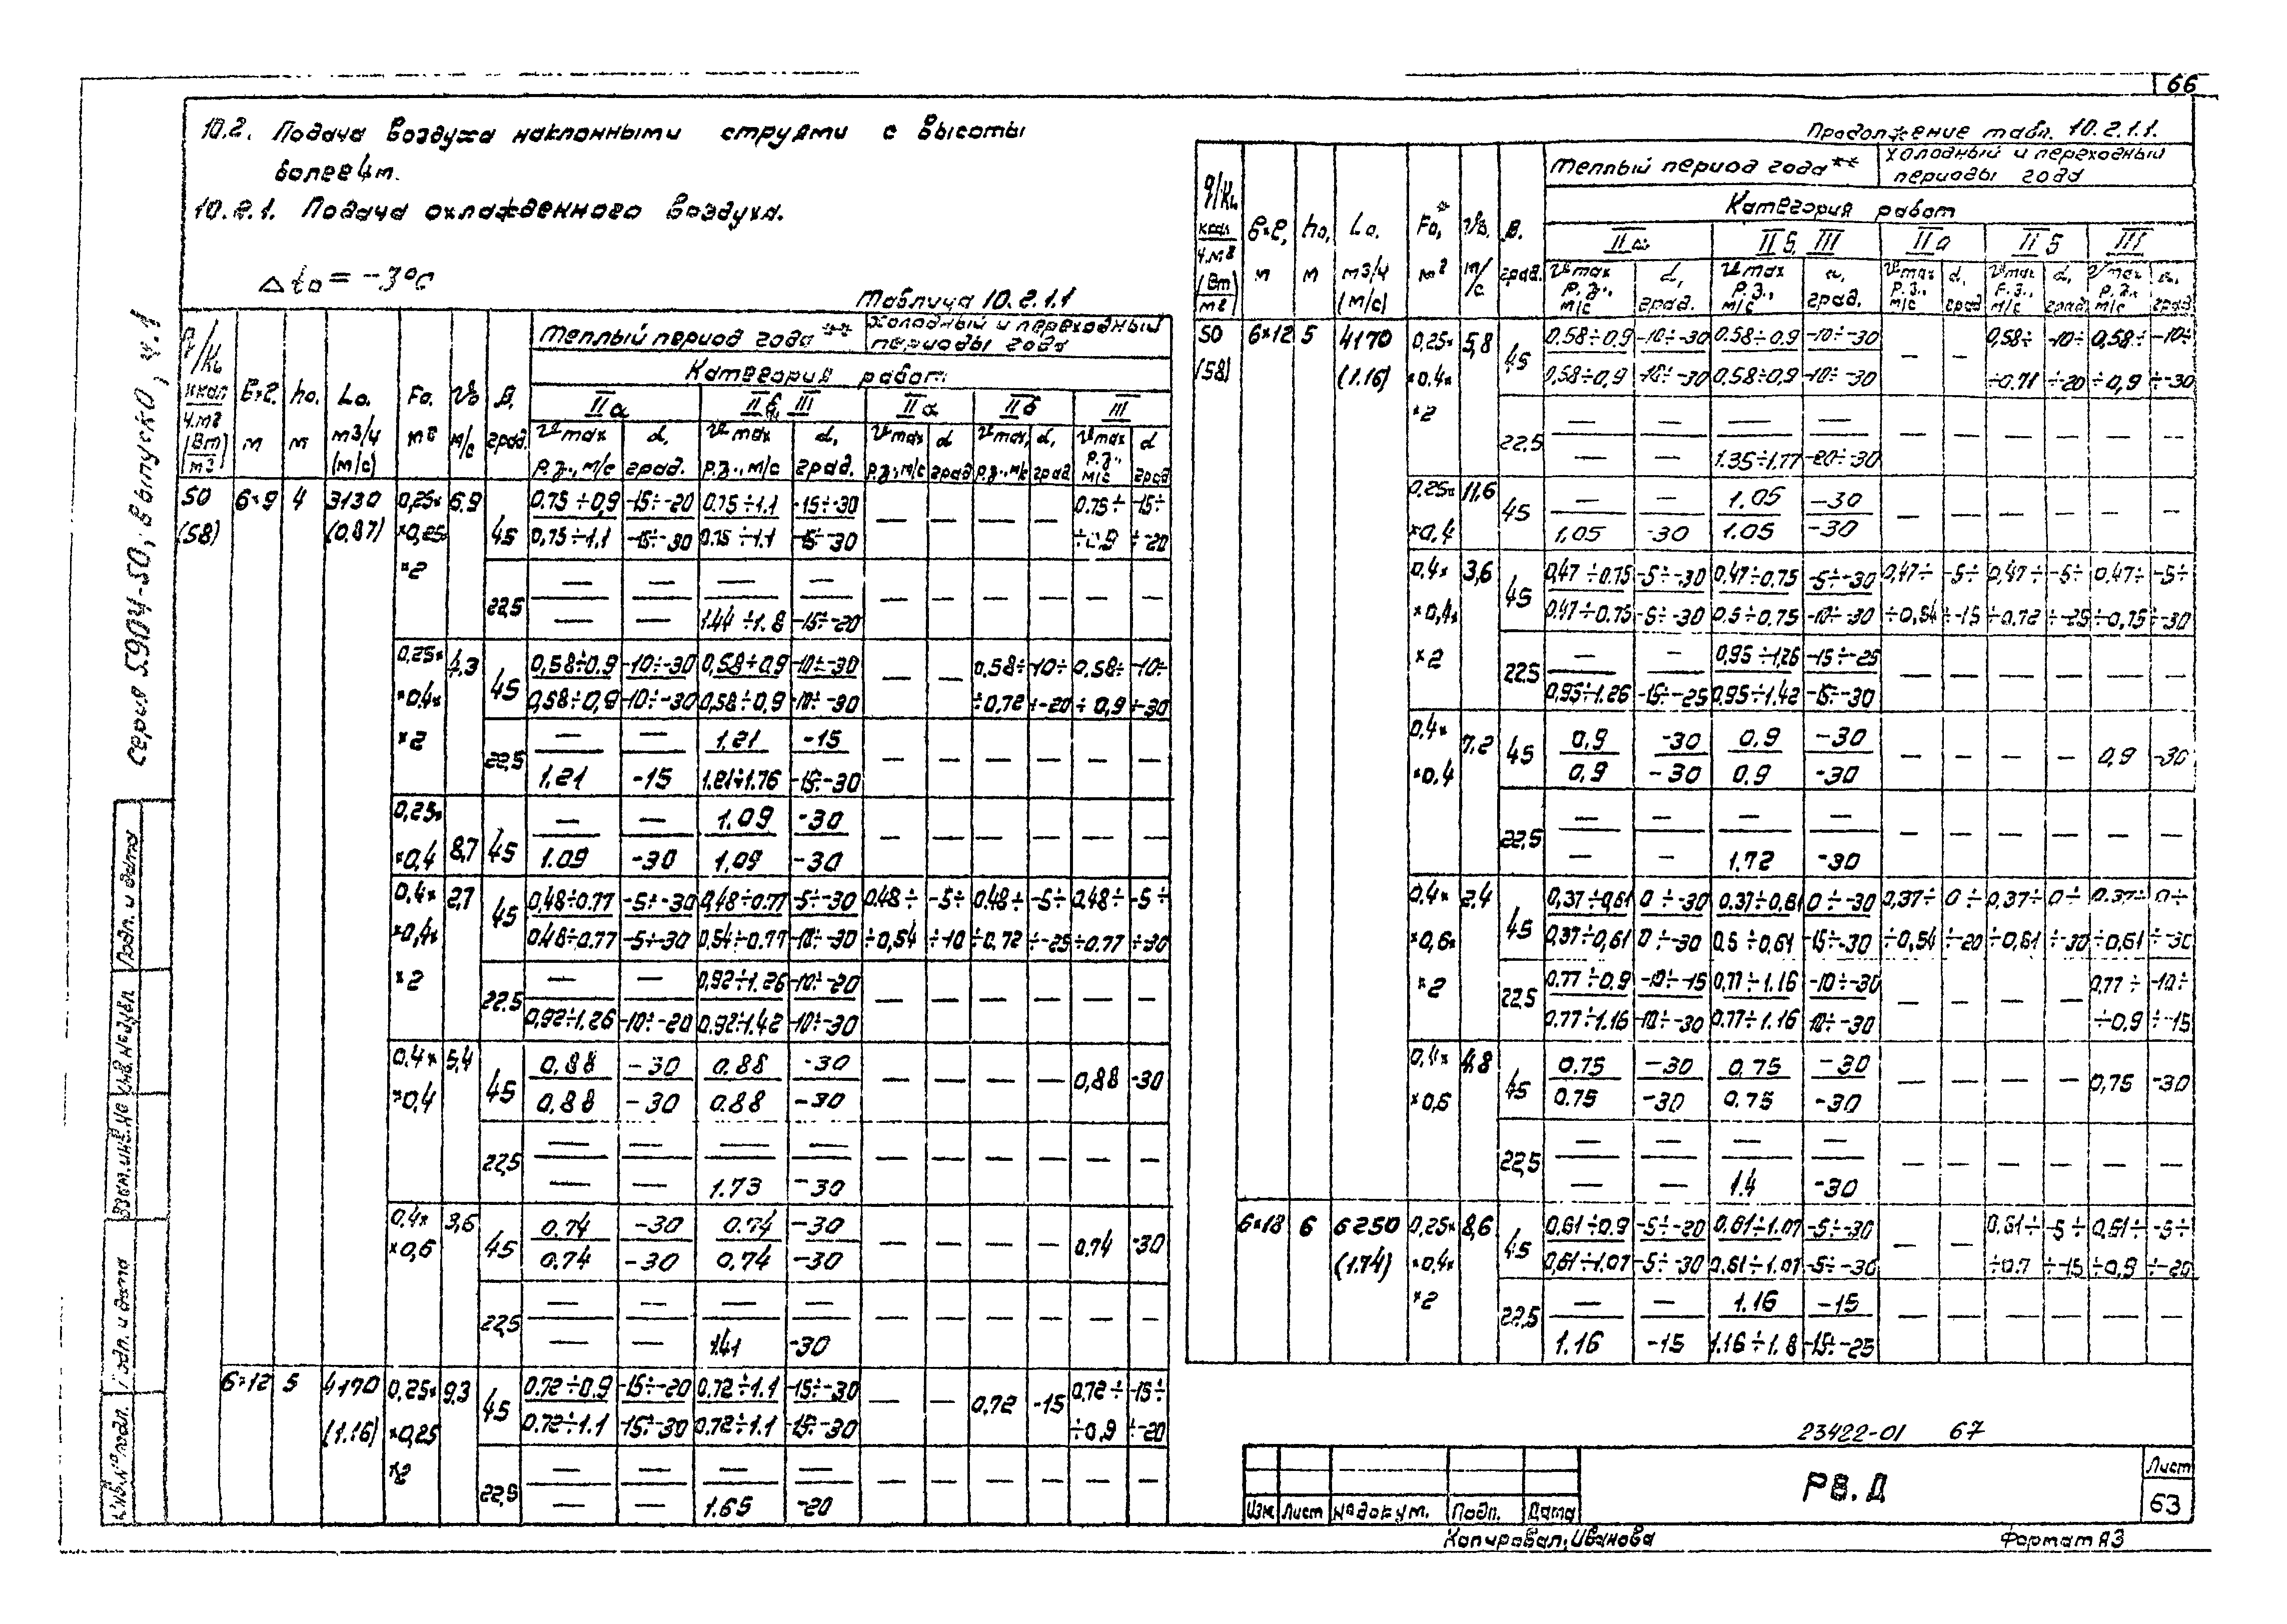 66
серия 5.904-50, выпуск 0, ч.1
10.2. Подача воздуха наклонными струями с высоты
более 4м.
10.2.1. Подача охлажденного воздуха.
Δt₀ = -3°C
Таблица 10.2.1.1
q/KL ккал ч.м² (Вт) м² | б×ℓ, м | h₀, м | L₀, м3/ч (м/с) | F₀, м² | V₀ м/с | β, град. | Теплый период года ** | Холодный и переходный периоды года
Категория работ
IIа | IIб, III | IIа | IIб | III
Vmax р.з., м/с | α, град. | Vmax р.з., м/с | α, град. | Vmax р.з., м/с | α град | Vmax, р.з., м/с | α, град | Vmax р.з., м/с | α град
50 (58) | 6×9 | 4 | 3130 (0,87) | 0,25× ×0,25 ×2 | 6,9 | 45 | 0.75÷0,9 | -15÷-20 | 0.75÷1.1 | -15÷-30 | — | — | — | — | 0.75÷ ÷0.9 | -15÷ ÷-20
0,75÷1.1 | -15÷-30 | 0.75÷1.1 | -15÷-30
22,5 | — | — | — | — | — | — | — | — | — | —
— | — | 1.44÷1.8 | -15÷-20
0,25× ×0,4× ×2 | 4,3 | 45 | 0,58÷0.9 | -10÷-30 | 0,58÷0,9 | -10÷-30 | — | — | 0,58÷ ÷0,72 | -10÷ ÷-20 | 0.58÷ ÷0,9 | -10÷ ÷-30
0,58÷0,9 | -10÷-30 | 0,58÷0,9 | -10÷-30
22,5 | — | — | 1,21 | -15 | — | — | — | — | — | —
1,21 | -15 | 1.21÷1.76 | -15÷-30
0,25× ×0,4 | 8,7 | 45 | — | — | 1.09 | -30 | — | — | — | — | — | —
1.09 | -30 | 1,09 | -30
0,4× ×0,4× ×2 | 2,7 | 45 | 0,48÷0.77 | -5÷-30 | 0,48÷0.77 | -5÷-30 | 0,48÷ ÷0,54 | -5÷ ÷-10 | 0,48÷ ÷0.72 | -5÷ ÷-25 | 0,48÷ ÷0.77 | -5÷ ÷-30
0.48÷0.77 | -5÷-30 | 0,54÷0.77 | -10÷-30
22,5 | — | — | 0,92÷1.26 | -10÷-20 | — | — | — | — | — | —
0,92÷1,26 | -10÷-20 | 0.92÷1.42 | -10÷-30
0.4× ×0,4 | 5,4 | 45 | 0,88 | -30 | 0.88 | -30 | — | — | — | — | 0,88 | -30
0,88 | -30 | 0.88 | -30
22,5 | — | — | — | — | — | — | — | — | — | —
— | — | 1.73 | -30
0.4× ×0,6 | 3,6 | 45 | 0.74 | -30 | 0.74 | -30 | — | — | — | — | 0.74 | -30
0.74 | -30 | 0.74 | -30
22,5 | — | — | — | — | — | — | — | — | — | —
— | — | 1.41 | -30
6×12 | 5 | 4170 (1.16) | 0,25× ×0,25 ×2 | 9,3 | 45 | 0.72÷0.9 | -15÷-20 | 0.72÷1.1 | -15÷-30 | — | — | 0,72 | -15 | 0.72÷ ÷0,9 | -15÷ ÷-20
0.72÷1.1 | -15÷-30 | 0.72÷1.1 | -15÷-30
22,5 | — | — | — | — | — | — | — | — | — | —
— | — | 1.65 | -20
Продолжение табл. 10.2.1.1.
q/KL ккал ч.м² (Вт) м² | б×ℓ, м | h₀, м | L₀, м3/ч (м/с) | F₀,* м² | V₀, м/с | β, град. | Теплый период года ** | Холодный и переходный периоды года
Категория работ
IIа | IIб, III | IIа | IIб | III
Vmax р.з., м/с | α, град. | Vmax р.з., м/с | α, град. | Vmax р.з., м/с | α, град | Vmax р.з., м/с | α, град | Vmax р.з., м/с | α, град
50 (58) | 6×12 | 5 | 4170 (1.16) | 0,25× ×0.4× ×2 | 5,8 | 45 | 0.58÷0,9 | -10÷-30 | 0.58÷0.9 | -10÷-30 | — | — | 0,58÷ ÷0.71 | -10÷ ÷-20 | 0,58÷ ÷0,9 | -10÷ ÷-30
0,58÷0,9 | -10÷-30 | 0,58÷0,9 | -10÷-30
22,5 | — | — | — | — | — | — | — | — | — | —
— | — | 1.35÷1.77 | -20÷-30
0,25× ×0,4 | 11,6 | 45 | — | — | 1.05 | -30 | — | — | — | — | — | —
1,05 | -30 | 1.05 | -30
0.4× ×0,4× ×2 | 3,6 | 45 | 0,47÷0.75 | -5÷-30 | 0,47÷0,75 | -5÷-30 | 0,47÷ ÷0,54 | -5÷ ÷-15 | 0,47÷ ÷0.72 | -5÷ ÷-25 | 0,47÷ ÷0,75 | -5÷ ÷-30
0.47÷0.75 | -5÷-30 | 0.5÷0.75 | -10÷-30
22,5 | — | — | 0,95÷1,26 | -15÷-25 | — | — | — | — | — | —
0,95÷1.26 | -15÷-25 | 0,95÷1.42 | -15÷-30
0,4× ×0,4 | 7,2 | 45 | 0,9 | -30 | 0.9 | -30 | — | — | — | — | 0,9 | -30
0,9 | -30 | 0.9 | -30
22,5 | — | — | — | — | — | — | — | — | — | —
— | — | 1,72 | -30
0,4× ×0,6× ×2 | 2,4 | 45 | 0,37÷0,61 | 0÷-30 | 0.37÷0,61 | 0÷-30 | 0,37÷ ÷0,54 | 0÷ ÷-20 | 0,37÷ ÷0,61 | 0÷ ÷-30 | 0.37÷ ÷0,61 | 0÷ ÷-30
0,37÷0,61 | 0÷-30 | 0,5÷0,61 | -15÷-30
22,5 | 0.77÷0.9 | -10÷-15 | 0,77÷1.16 | -10÷-30 | — | — | — | — | 0,77÷ ÷0,9 | -10÷ ÷-15
0.77÷1.16 | -10÷-30 | 0.77÷1.16 | -10÷-30
0,4× ×0,6 | 4,8 | 45 | 0.75 | -30 | 0,75 | -30 | — | — | — | — | 0,75 | -30
0.75 | -30 | 0,75 | -30
22,5 | — | — | — | — | — | — | — | — | — | —
— | — | 1.4 | -30
6×18 | 6 | 6250 (1.74) | 0,25× ×0,4× ×2 | 8,6 | 45 | 0,61÷0,9 | -5÷-20 | 0,61÷1.07 | -5÷-30 | — | — | 0,61÷ ÷0.7 | -5÷ ÷-15 | 0,61÷ ÷0,9 | -5÷ ÷-20
0,61÷1.07 | -5÷-30 | 0,61÷1.07 | -5÷-30
22,5 | — | — | 1.16 | -15 | — | — | — | — | — | —
1.16 | -15 | 1.16÷1.8 | -15÷-25
23422-01 67
Р8.Д
Лист
63
Изм Лист № докум. Подп. Дата
Копировал: Иванова
Формат А3
Подп. и дата
Инв. № дубл.
Взам. инв. №
Подп. и дата
Инв. № подл.